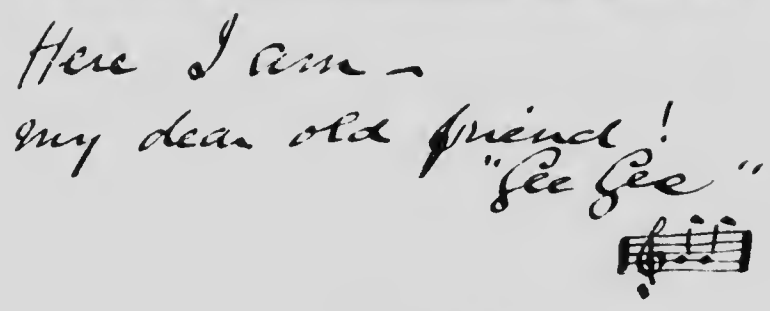 Here I am –
my dear old friend!
"Gee Gee"